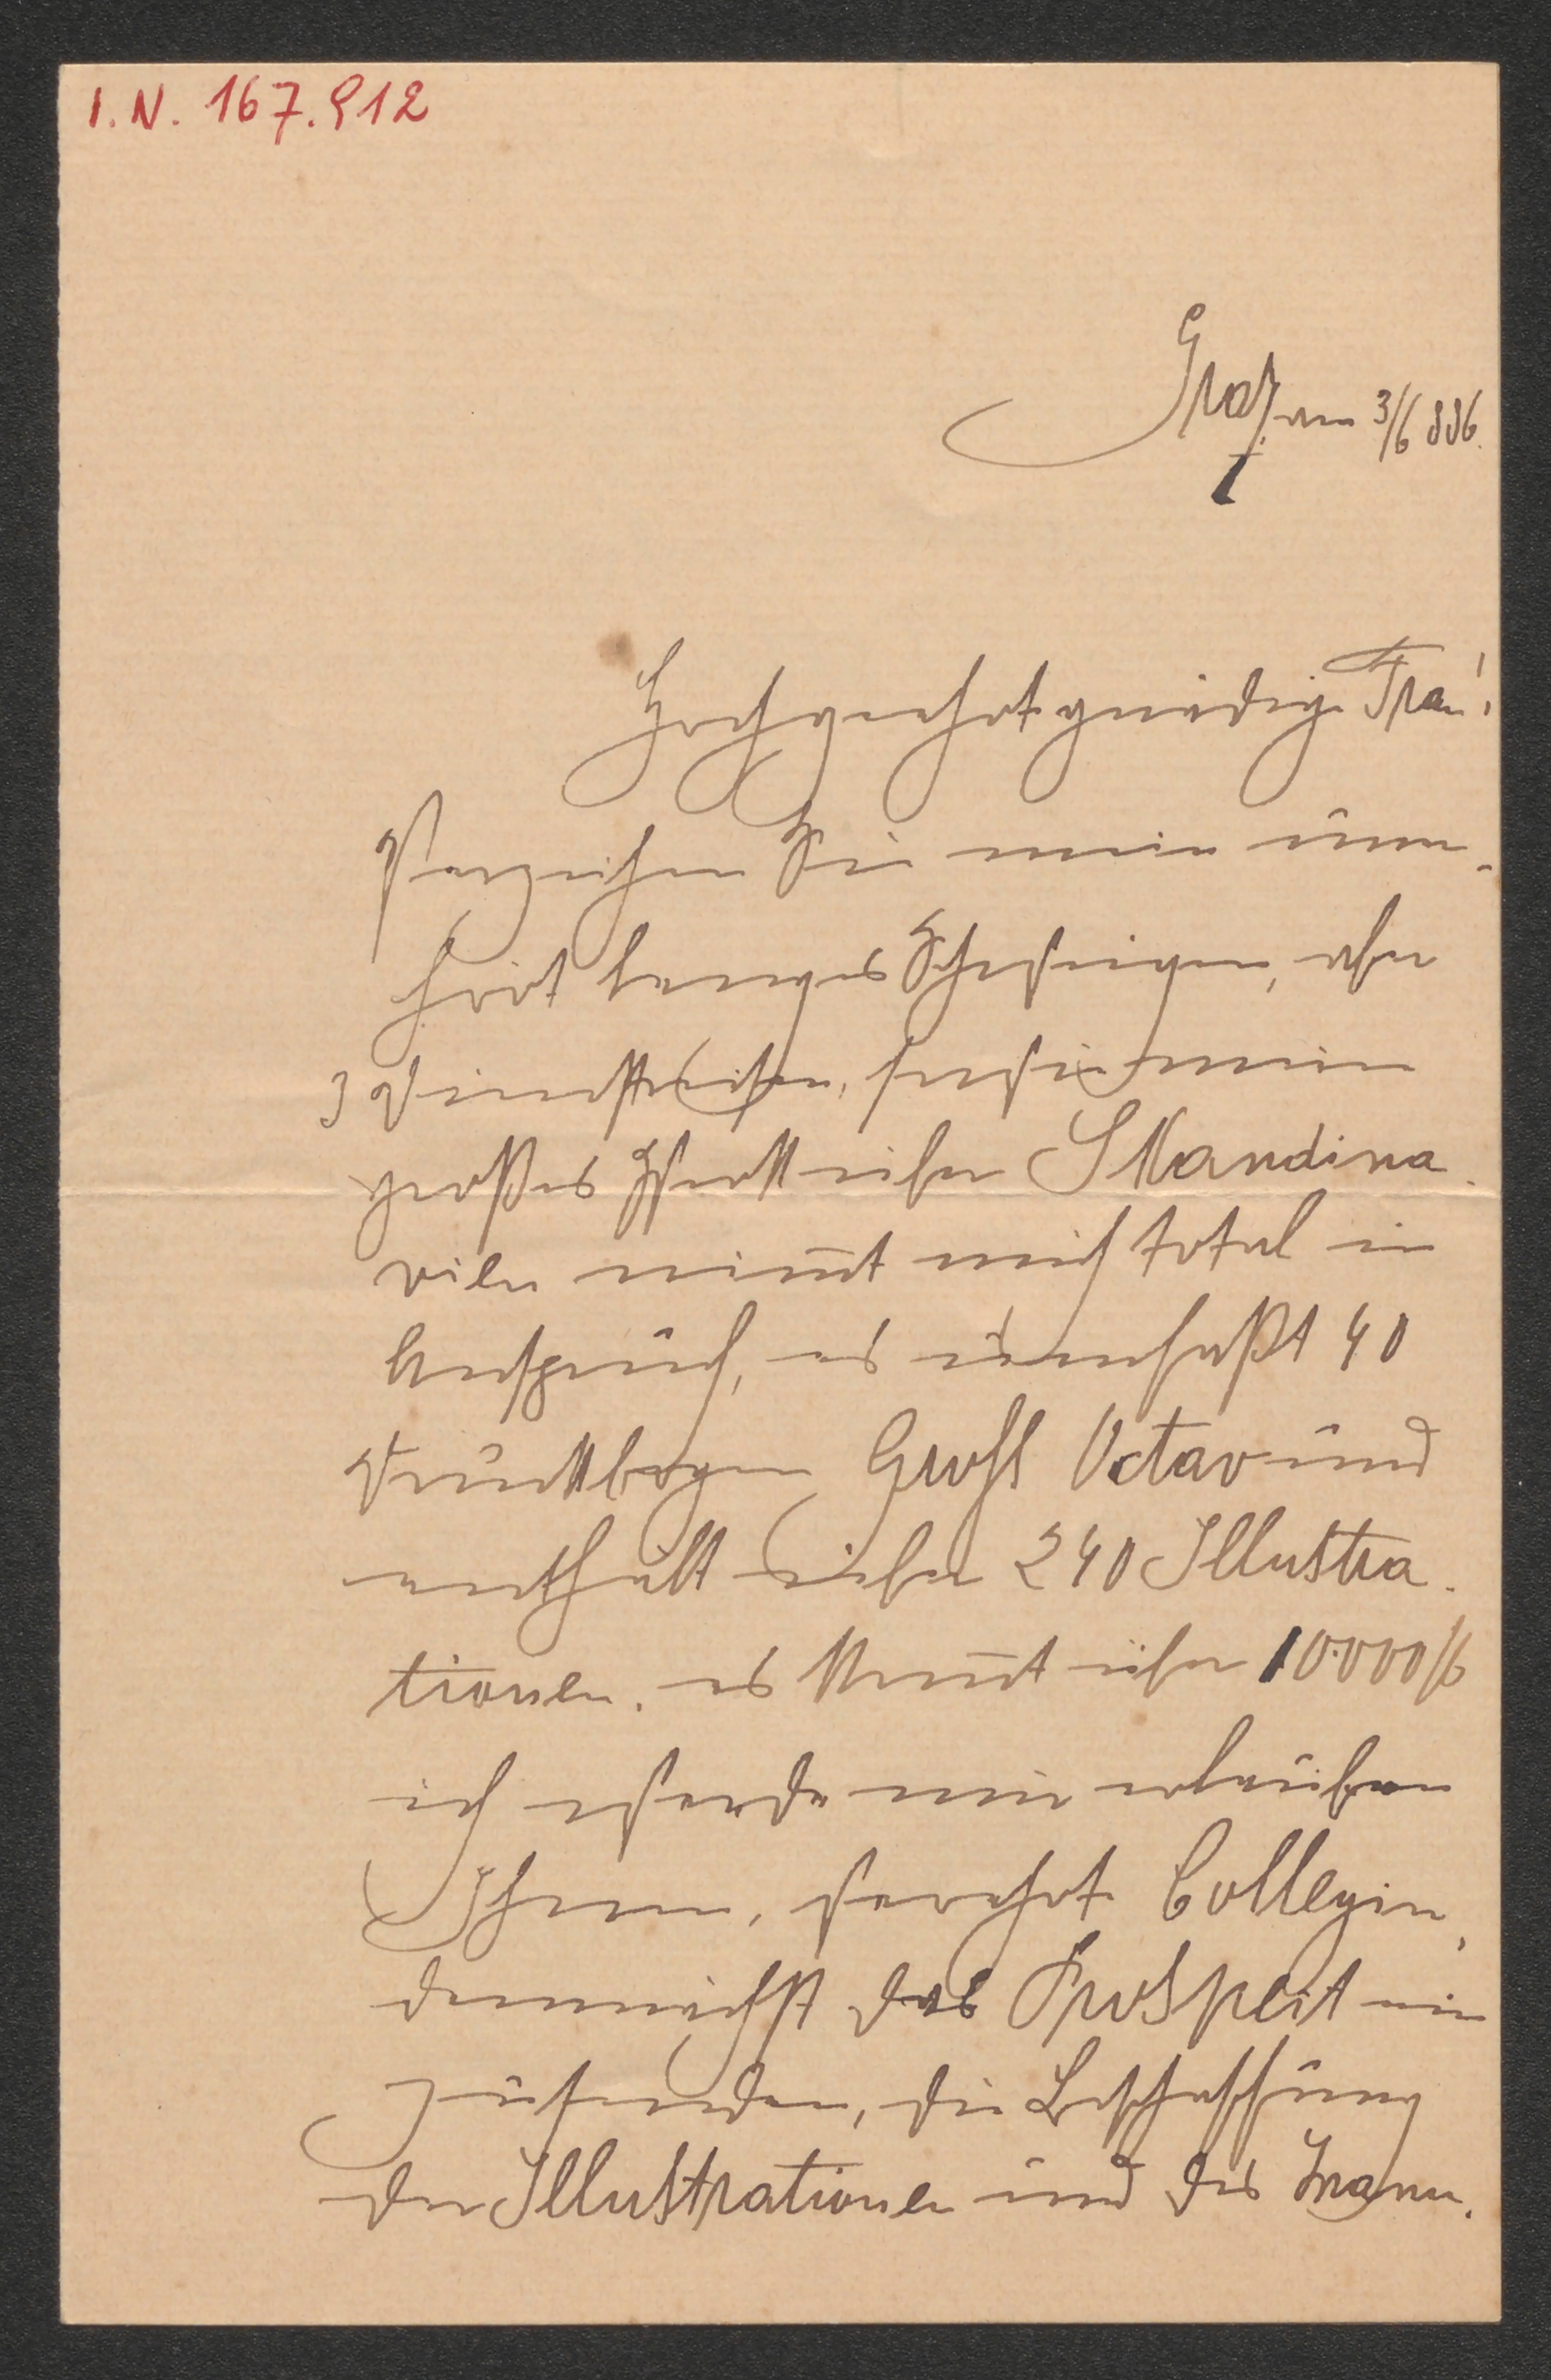 I. N. 167.912
Graz am 3/6 886.
Hochgeehrte gnädige Frau!
Verzeihen Sie mein uner-
hört langes Schweigen, aber
3 Dienstreisen, sowie mein
großes Werk über Skandina-
vien nimt mich total in
Anspruch, es umfaßt 40
Druckbogen Groß Octav und
enthält über 240 Illustra-
tionen. es kommt über 10.000 fl
ich werde mir erlauben
Ihnen, verehrte Collegin,
demnächst das Prospect ein
zusenden, die Beschaffung
der Illustrationen und des Manu-